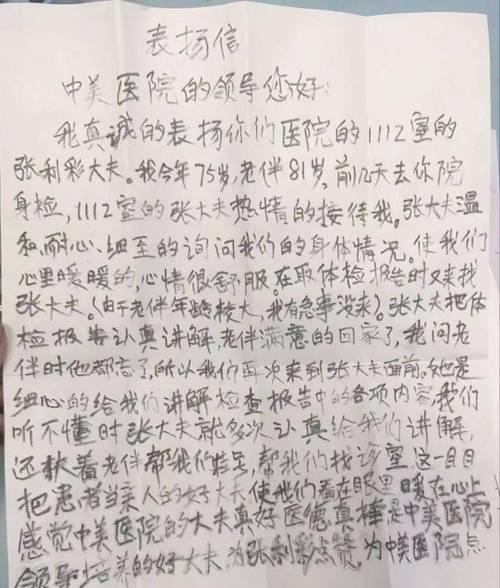 表扬信
中美医院的领导您好:
我真诚的表扬你们医院的1112室的
张利彩大夫。我今年75岁,老伴81岁,前几天去你院
身检,1112室的张大夫热情的接待我。张大夫温
和、耐心、细至的询问我们的身体情况。使我们
心里暖暖的,心情很舒服。在取体检报告时又来找
张大夫。(由于老伴年龄较大,我有急事没来)。张大夫把体
检报告认真讲解,老伴满意的回家了,我问老
伴时他都忘了,所以我们再次来到张大夫面前。她是
细心的给我们讲解检查报告中的各项内容,我们
听不懂时张大夫就多次认真给我们讲解,
还扶着老伴帮我们挂号,帮我们找诊室这一目目
把患者当亲人的好大夫使我们看在眼里暖在心上
感觉中美医院的大夫真好医德真棒是中美医院
领导培养的好大夫为张利彩点赞,为中美医院点